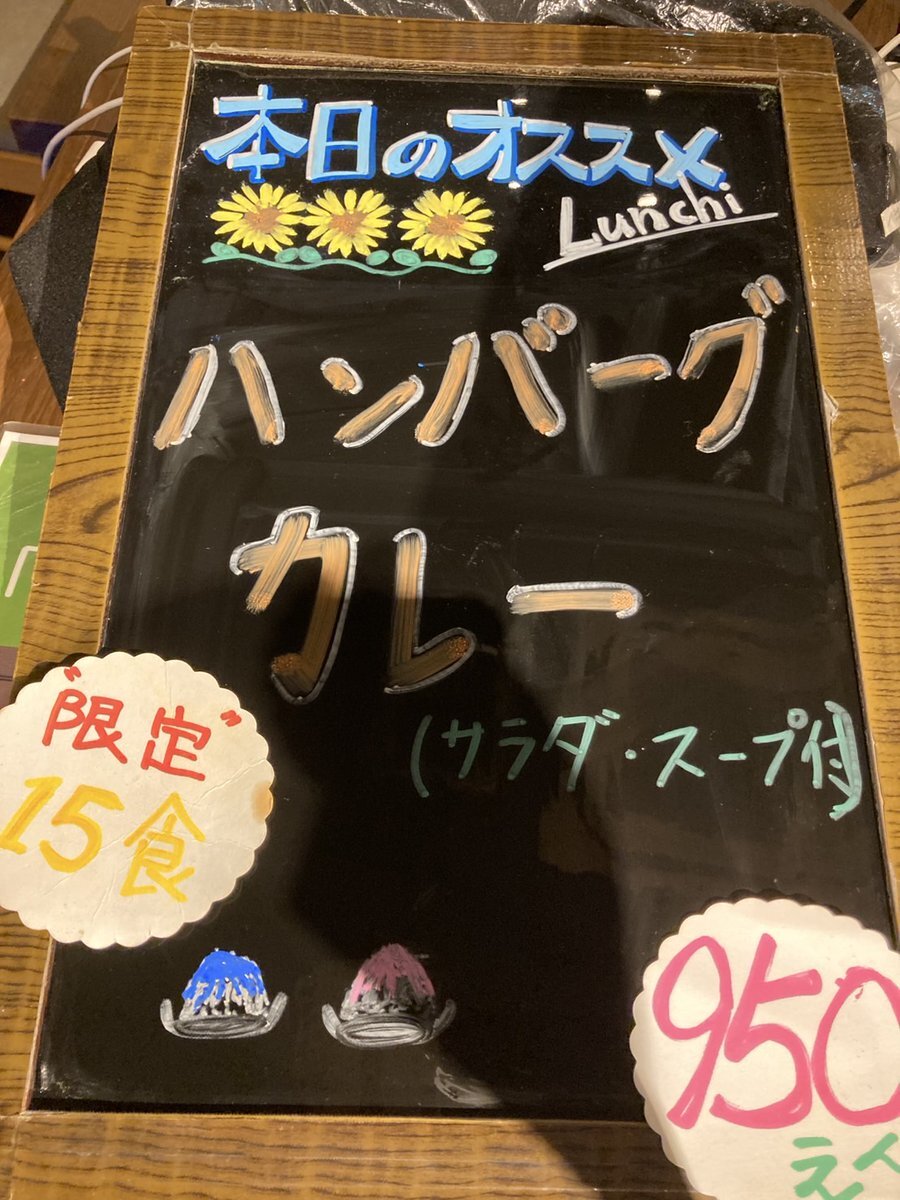 本日のオススメ
Lunchi
ハンバーグ
カレー
(サラダ・スープ付)
"限定"
15食
950
えん